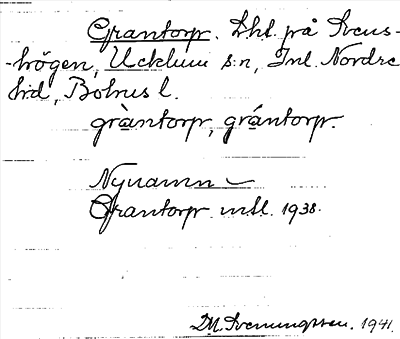 Grantorp. Lht. på Svens-
-högen, Ucklum s:n, Inl. Nordre
hd, Bohus l.
gràntorp, grántorp.
Nynamn
Grantorp. mtl. 1938.
D.M. Svenningsson. 1941.